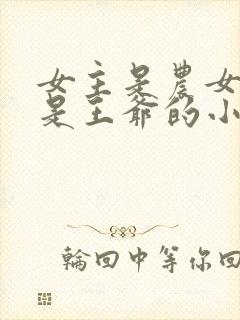 女主是農女
是王爺的小
輪回中等你回